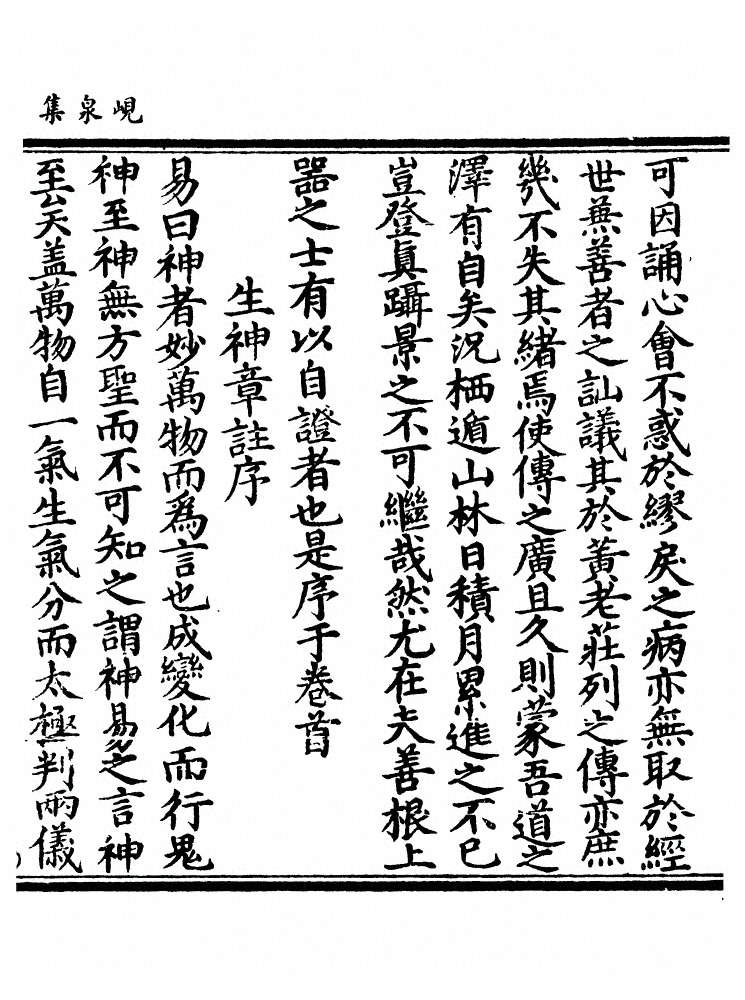 峴泉集
可因誦心會不惑於繆戾之病亦無取於經
世兼善者之訕議其於黃老莊列之傳亦庶
幾不失其緒焉使傳之廣且久則蒙吾道之
澤有自矣況栖遁山林日積月累進之不已
豈登真躡景之不可繼哉然尤在夫善根上
器之士有以自證者也是序于卷首
生神章註序
易曰神者妙萬物而爲言也成變化而行鬼
神至神無方聖而不可知之謂神易之言神
至矣盖萬物自一氣生氣分而太極判兩儀